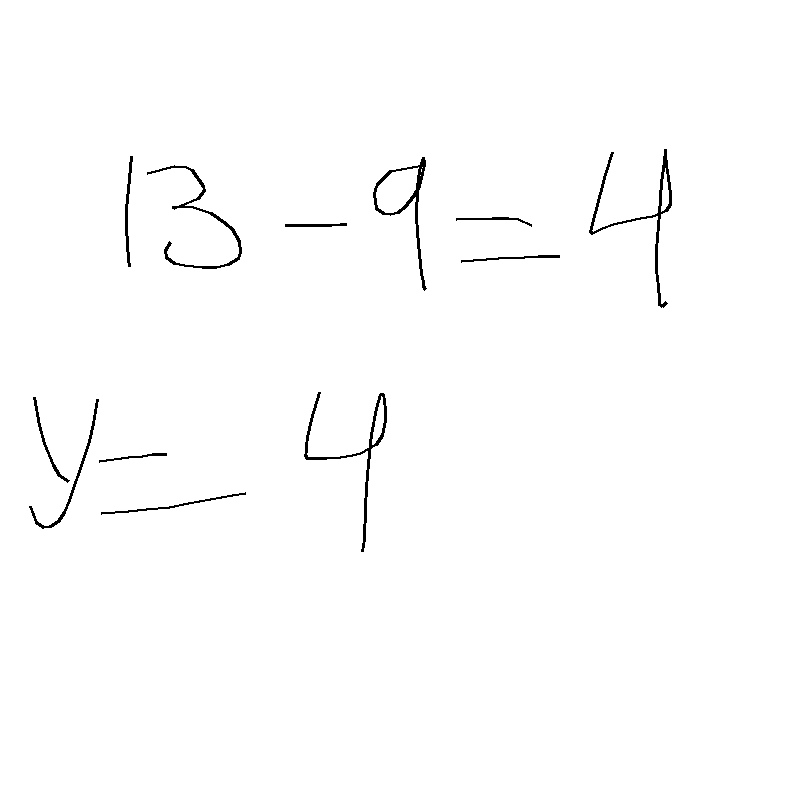 13 - 9 = 4
y = 4